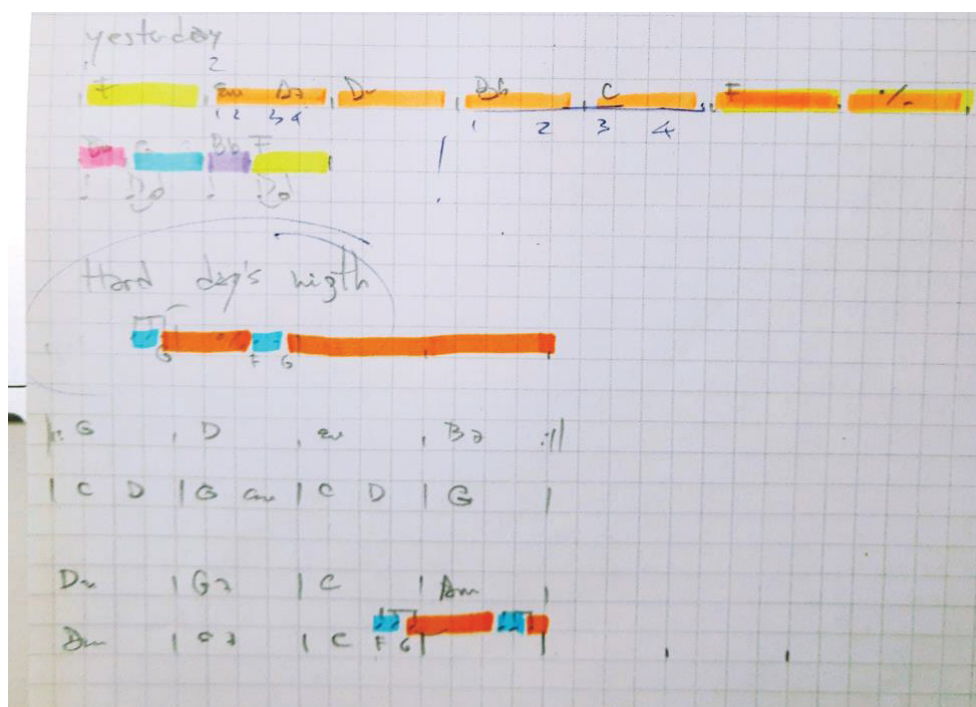 yesterday
2
F Em A7 Dm Bb C F ·/.
1 2 3 4 1 2 3 4
Dm G Bb F
Hard day's nigth
G F G
||: G | D | Em | B7 :||
| C D | G Em | C D | G |
Dm | G7 | C | Am |
Dm | G7 | C F G |